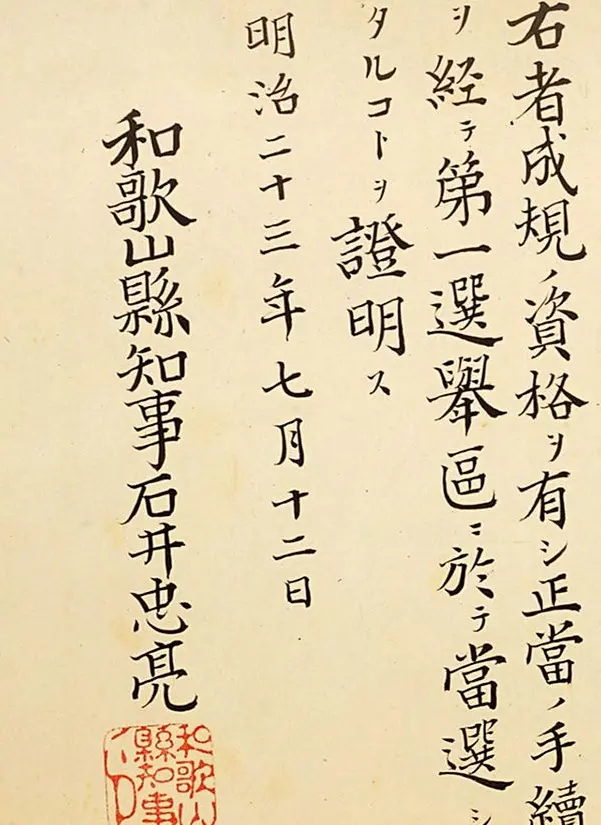 右者成規ノ資格ヲ有シ正當ノ手續
ヲ経テ第一選擧區ニ於テ當選シ
タルコトヲ證明ス
明治二十三年七月十二日
和歌山縣知事石井忠亮
和歌山
縣知事